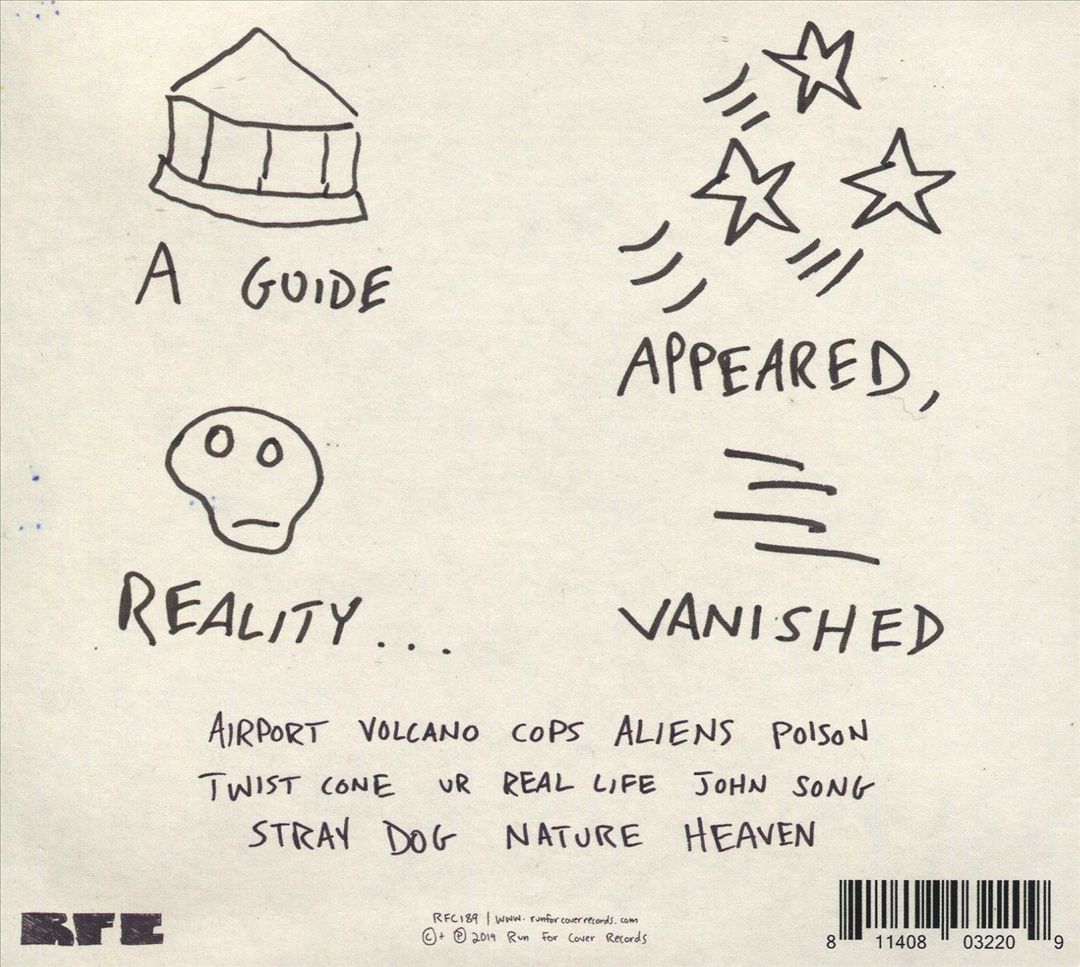 A GUIDE
APPEARED,
REALITY...
VANISHED
AIRPORT VOLCANO COPS ALIENS POISON
TWIST CONE UR REAL LIFE JOHN SONG
STRAY DOG NATURE HEAVEN
RFC
RFC189 | www.runforcoverrecords.com
©+ ℗ 2019 Run For Cover Records
8 11408 03220 9